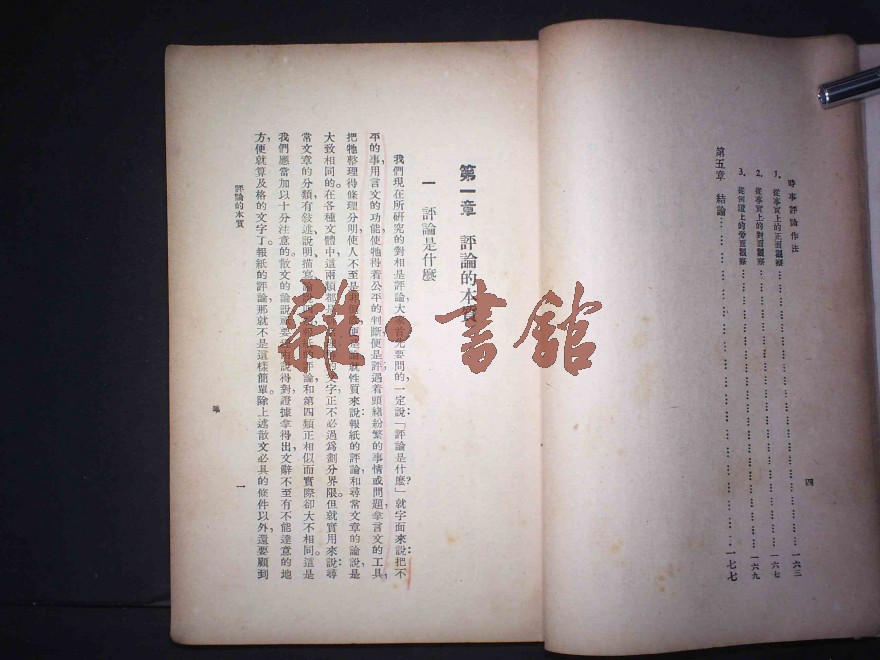 時事評論作法
1. 從事實上的正面觀察……一六三
2. 從事實上的對面觀察……一六七
3. 從何證上的旁面觀察……一六九
第五章 結論……一七七
四
第一章 評論的本質
一 評論是什麼
我們現在所研究的對相是評論,大家首先要問的,一定說:「評論是什麼?」就字面來說:把不
平的事,用言文的功能,使牠得着公平的判斷,便是評;遇着頭緒紛繁的事情或問題,拿言文的工具,
把牠整理得條理分明,使人不至是非 便是論。就性質來說:報紙的評論,和尋常文章的論說,是
大致相同的。在各種文體中,這兩類都是 文字,正不必過爲劃分界限。但就實用來說:尋
常文章的分類,有敍述、說明、描寫、論說四 報紙的評論和第四類正相似,而實際卻大不相同。這是
我們應當加以十分注意的。散文的論說,祇要 說得對,證據拿得出,文辭不至有不能達意的地
方,便就算及格的文字了。報紙的評論,那就不是這樣簡單。除上述散文必具的條件以外,還要顧到
評論的本質
一
雜·書館